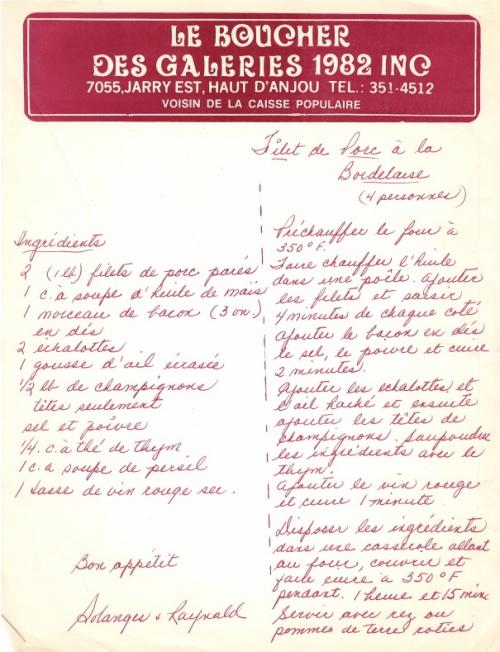 LE BOUCHER
DES GALERIES 1982 INC
7055, JARRY EST, HAUT D'ANJOU TEL.: 351-4512
VOISIN DE LA CAISSE POPULAIRE
Filet de Porc à la
Bordelaise
(4 personnes)
Ingrédients
2 (1 lb) filets de porc parés
1 c. à soupe d'huile de maïs
1 morceau de bacon (3 on.)
en dés
2 échalottes
1 gousse d'ail écrasée
1/2 lb de champignons
têtes seulement
sel et poivre
1/4 c. à thé de thym
1 c. a soupe de persil
1 tasse de vin rouge sec.
Bon appétit
Solanges & Raynald
Préchauffer le four à
350° F.
Faire chauffer l'huile
dans une poêle. Ajouter
les filets et saisir
4 minutes de chaque coté
ajouter le bacon en dés
le sel, le poivre et cuire
2 minutes.
Ajouter les echalottes et
l'ail haché et ensuite
ajouter les têtes de
champignons. Saupoudrer
les ingrédients avec le
thym.
Ajouter le vin rouge
et cuire 1 minute
Disposer les ingrédients
dans une casserole allant
au four, couvrir et
faire cuire à 350° F
pendant 1 heure et 15 min.
Servir avec riz ou
pommes de terre roties